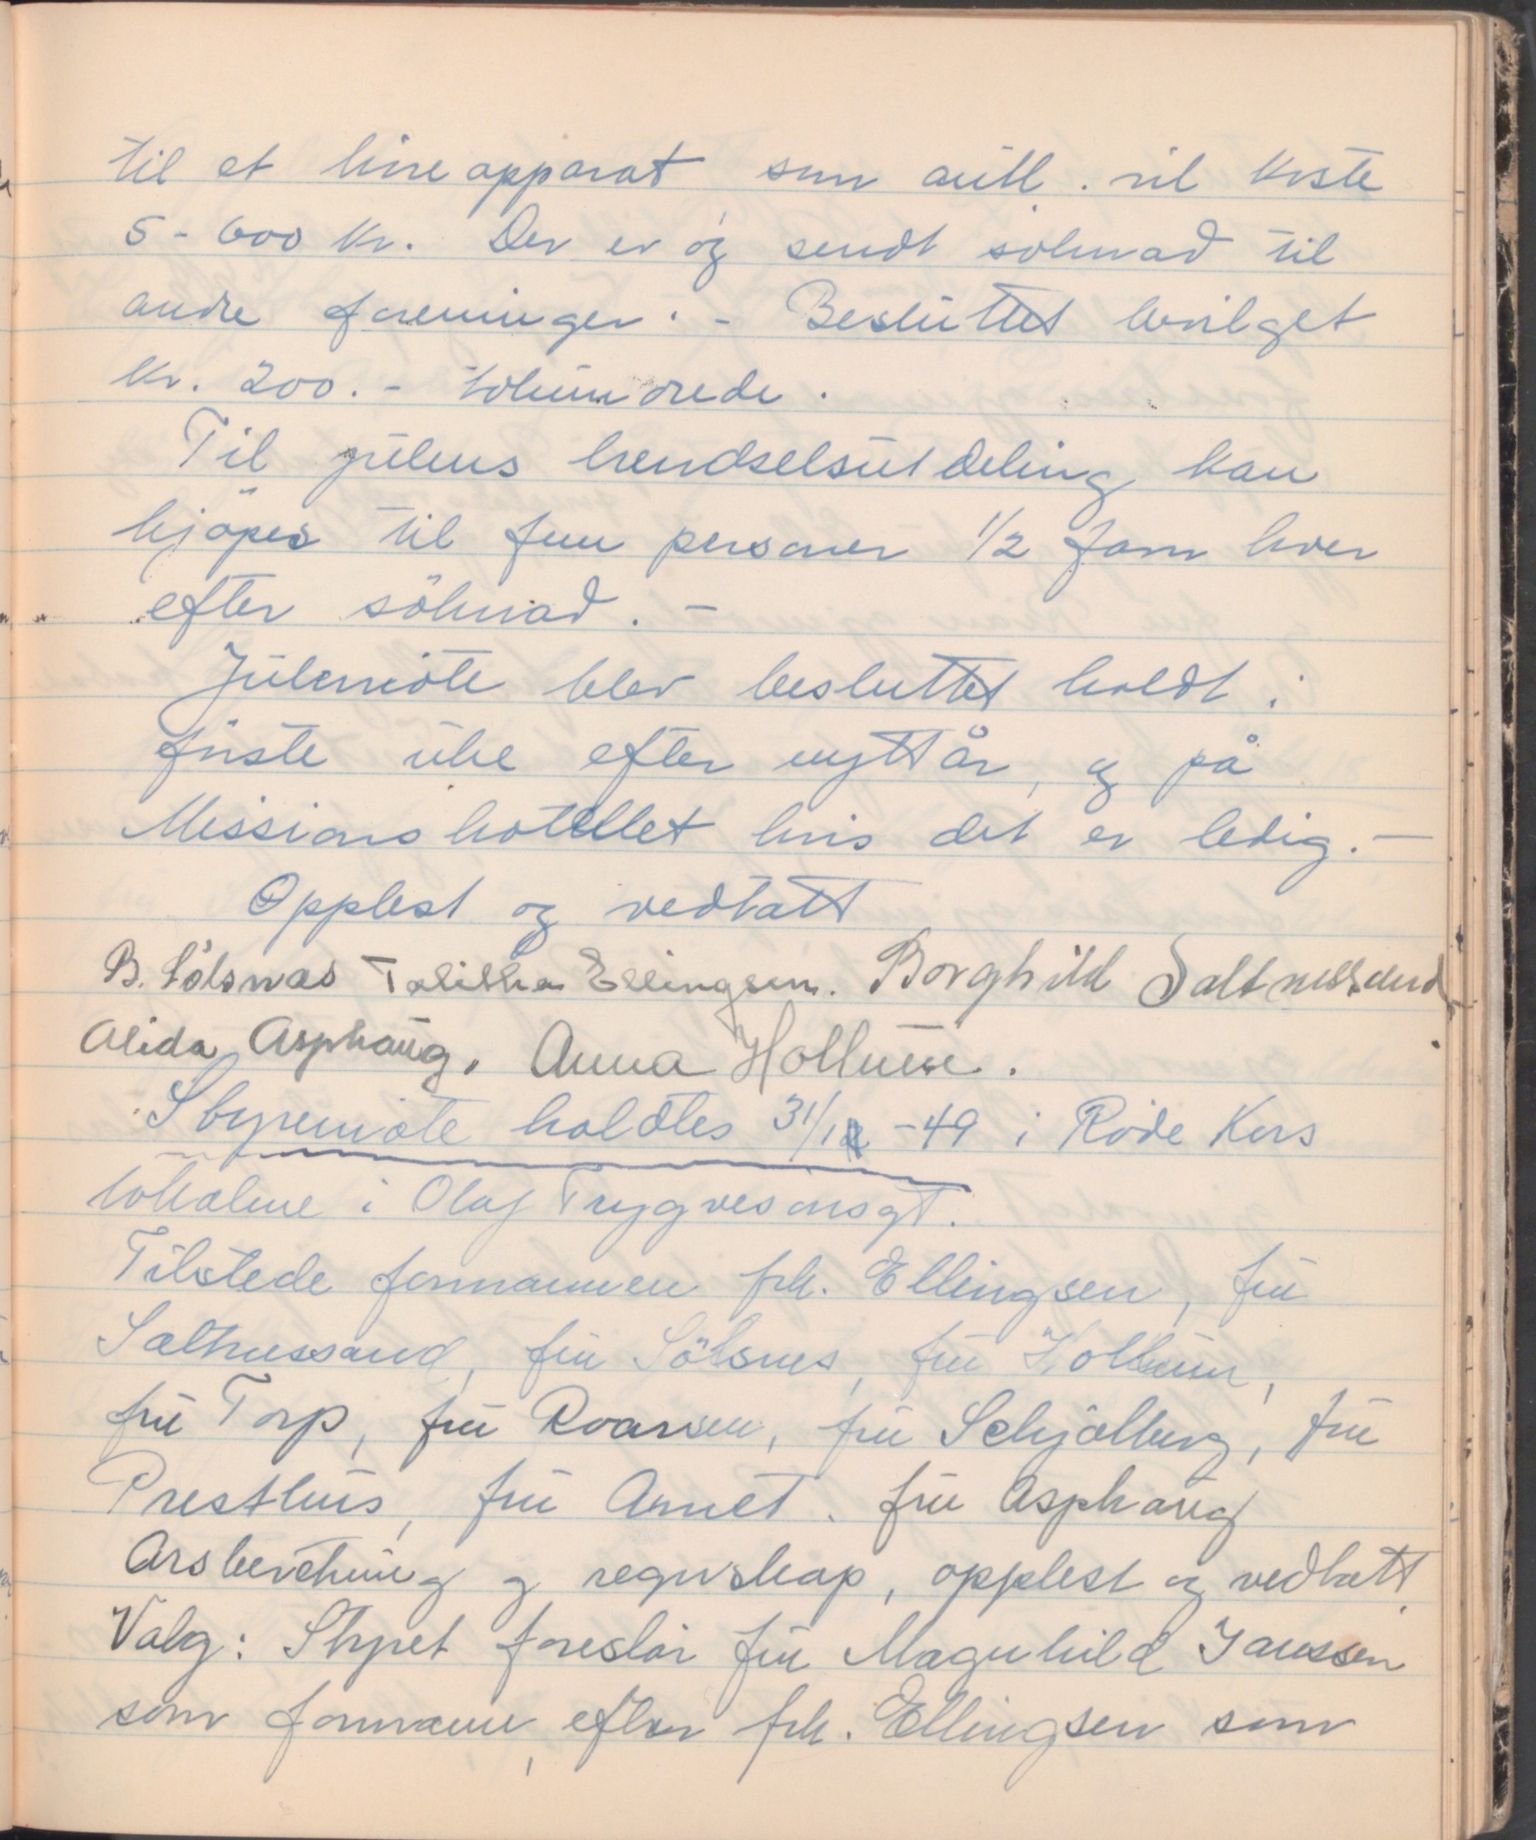 til et hire apparat som auth. vil koste
5-600 kr. Der er óg sendt söknad til
andre foreninger. - Besluttet bevilget
kr. 200.- tohundrede.
Til julens brendselsutdeling kan
kjöpes til fem personer 1/2 favn hver
efter söknad. -
Julemöte blev besluttet holdt i
förste uke efter nyttår, og på
Missionshotellet hvis det er ledig. -
Opplest og vedtatt
B. Sölsnæs Talitha Ellingsen. Borghild Saltnessand
Alida Asphaug. Anna Hollum.
Styremöte holdtes 31/1 -49 i Röde Kors
lokalene i Olaf Trygvesonsgt.
Tilstede formannen frk. Ellingsen, fru
Saltnessand, fru Sölsnes, fru Hollum,
fru Torp, fru Roarsen, fru Schjølberg, fru
Presthus, fru Arnet. fru Asphaug
Årsberetning og regnskap, opplest og vedtatt.
Valg: Styret foreslår fru Magnhild Janssen
som formann, efter frk. Ellingsen som